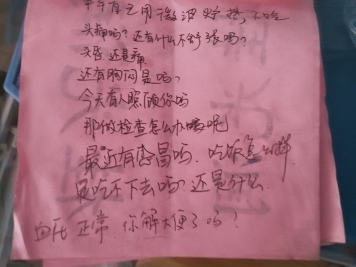 头痛吗？还有什么不舒服吗？
头昏还是痛
还有胸闷是吗？
今天有人照顾你吗
那做检查怎么办呢
最近有感冒吗．吃饭怎么样
是吃不下去吗？还是什么
血压正常．你解大便了吗？